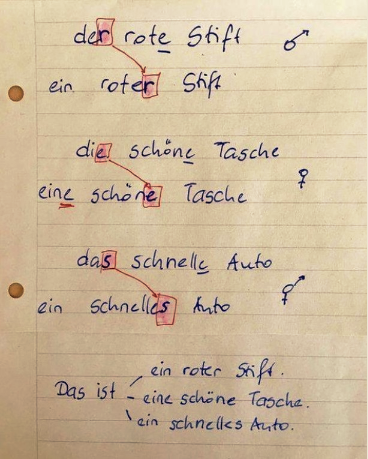 der rote Stift
ein roter Stift
die schöne Tasche
eine schöne Tasche
das schnelle Auto
ein schnelles Auto
ein roter Stift.
Das ist eine schöne Tasche.
ein schnelles Auto.